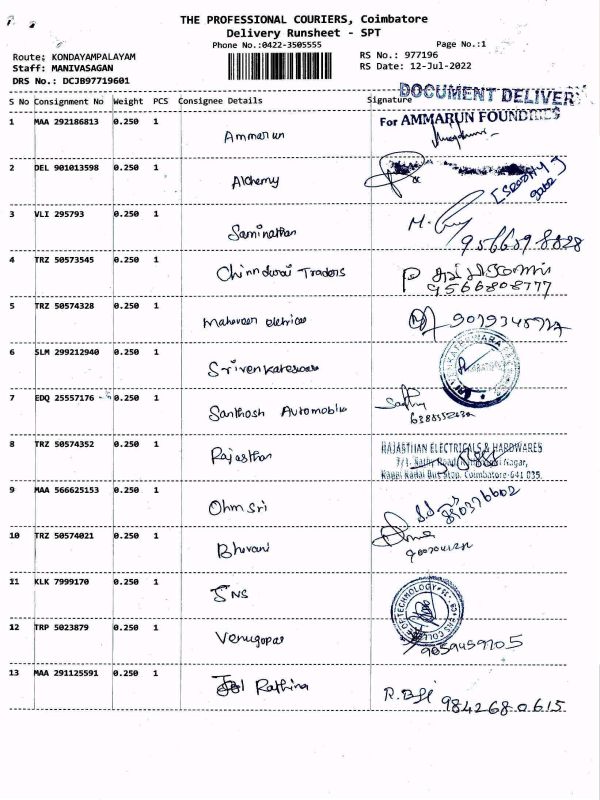 THE PROFESSIONAL COURIERS, Coimbatore
Delivery Runsheet - SPT
Phone No.:0422-3505555
Page No.:1
Route: KONDAYAMPALAYAM
RS No.: 977196
Staff: MANIVASAGAN
RS Date: 12-Jul-2022
DRS No.: DCJB97719601
DOCUMENT DELIVERY
S No Consignment No Weight PCS Consignee Details Signature
For AMMARUN FOUNDRIES
1 MAA 292186813 0.250 1 Ammarun
2 DEL 901013598 0.250 1 Alchemy
3 VLI 295793 0.250 1 Saminathan
4 TRZ 50573545 0.250 1 Chinndurai Traders
9566808777
5 TRZ 50574328 0.250 1 Mahaveer eletrical
6 SLM 299212940 0.250 1 Srivenkateswara
7 EDQ 25557176 0.250 1 Santhosh Automobile
8 TRZ 50574352 0.250 1 Rajasthan
RAJASTHAN ELECTRICALS & HARDWARES
Coimbatore-641 035.
9 MAA 566625153 0.250 1 Ohm Sri
10 TRZ 50574021 0.250 1 Bhavani
11 KLK 7999170 0.250 1 SNS
SNS COLLEGE OF TECHNOLOGY
12 TRP 5023879 0.250 1 Venugopal
9659459705
13 MAA 291125591 0.250 1 Rathina
9842680615